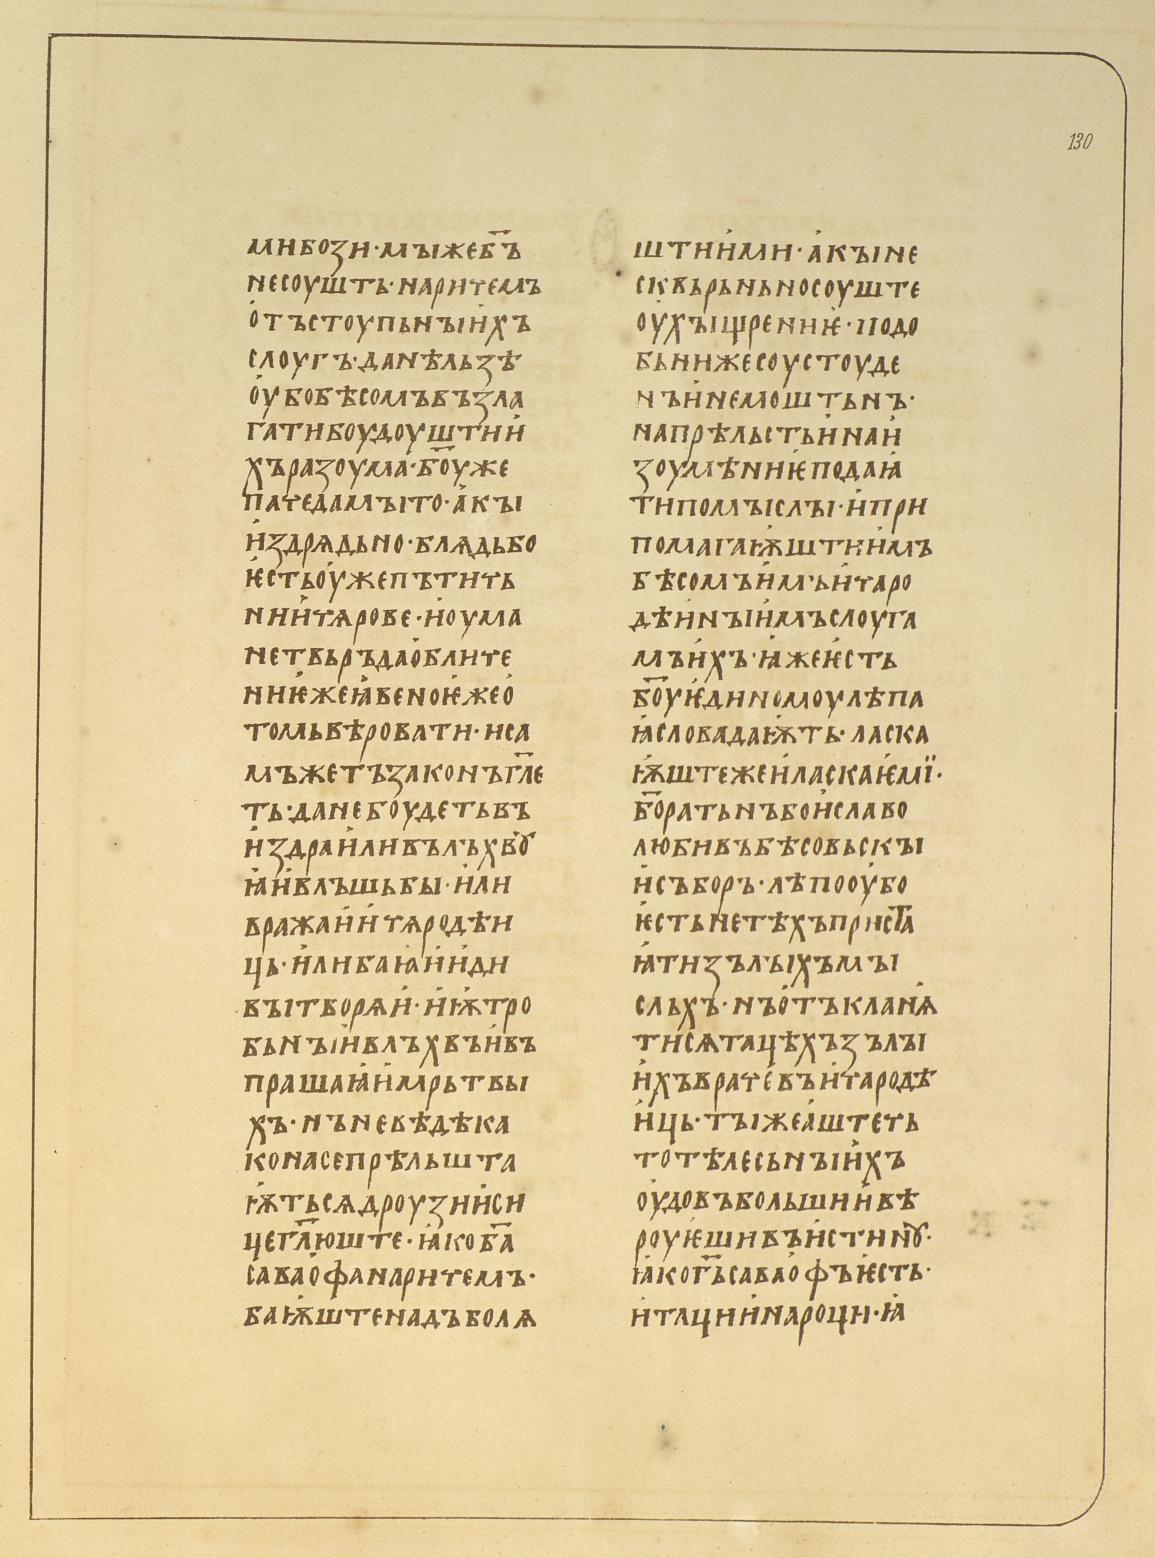 130
мибози·мꙑжеб҃ъ
несоушть·наричемъ
о́тъстоупьнꙑи́хъ
слоугъ·данѣльзѣ
о́убобѣсомъвъзла
гатибоудоуштии́
хъразоума·бо҃уже
пачедамꙑто·а́кꙑ
и́здрѧдьно·блѧдьбо
ѥ́стьоу́жепътичь
нии́чѧрове·и́оума
нетвьръдао́бличе
ниѥ́жеꙗ́веноѥ́жео́
томьвѣровати·иса
мъжетъзаконъгл҃е
ть·данебоудетьвъ
и́здраи́ливълъхвꙋ́
ꙗ́и́влъшьбы·и́ли
вражаи́и́чѧродѣи
ць·и́либаꙗ́и́и́ди
вꙑтворѧи́·и́ѭ́тро
бьнꙑи́влъхвъи́въ
прашаꙗ́и́мрьтвы
хъ·нъневѣдѣка
конасепрѣльшта
ѭ́тьсѧдроузии́си
цегл҃юште·ꙗ́коб҃а
савао́фанаричемъ·
баѭ́штенадъболѧ
штии́ми·а́кꙑне
сквьрьньносоуште
оу́хꙑщрениѥ́·подо
бьнижесоустоуде
нъи́немоштьнъ·
напрѣльстьи́наи́
зоумѣниѥ́подаꙗ́
типомꙑслꙑ·и́при
помагаѭ́штиимъ
бѣсомъи́мъи́чаро
дѣи́нꙑи́мъслоуга
мъи́хъ·ꙗ́жеѥ́сть
бо҃уѥ́диномоулѣпа
ꙗ́словадаѭ́ть·ласка
ѭ́штежеи́ласкаѥ́мї·
бо҃ратьнъбои́славо
любивъбѣсовьскꙑ
и́съборъ·лѣпооу́бо
ѥ́стьнетѣхъприста
ꙗ́тизълꙑхъмꙑ
сльхъ·нъо́тъкланꙗ́
тисѧтацѣхъзълꙑ
и́хъврачевъи́чародѣ
и́ць·тꙑжеа́штечь
тотѣлесьнꙑи́хъ
оу́довъбольшии́вѣ
роуѥ́шивъи́стинꙋ·
ꙗ́ког҃ьсавао́фъѥ́сть·
и́тации́инароци·ꙗ́